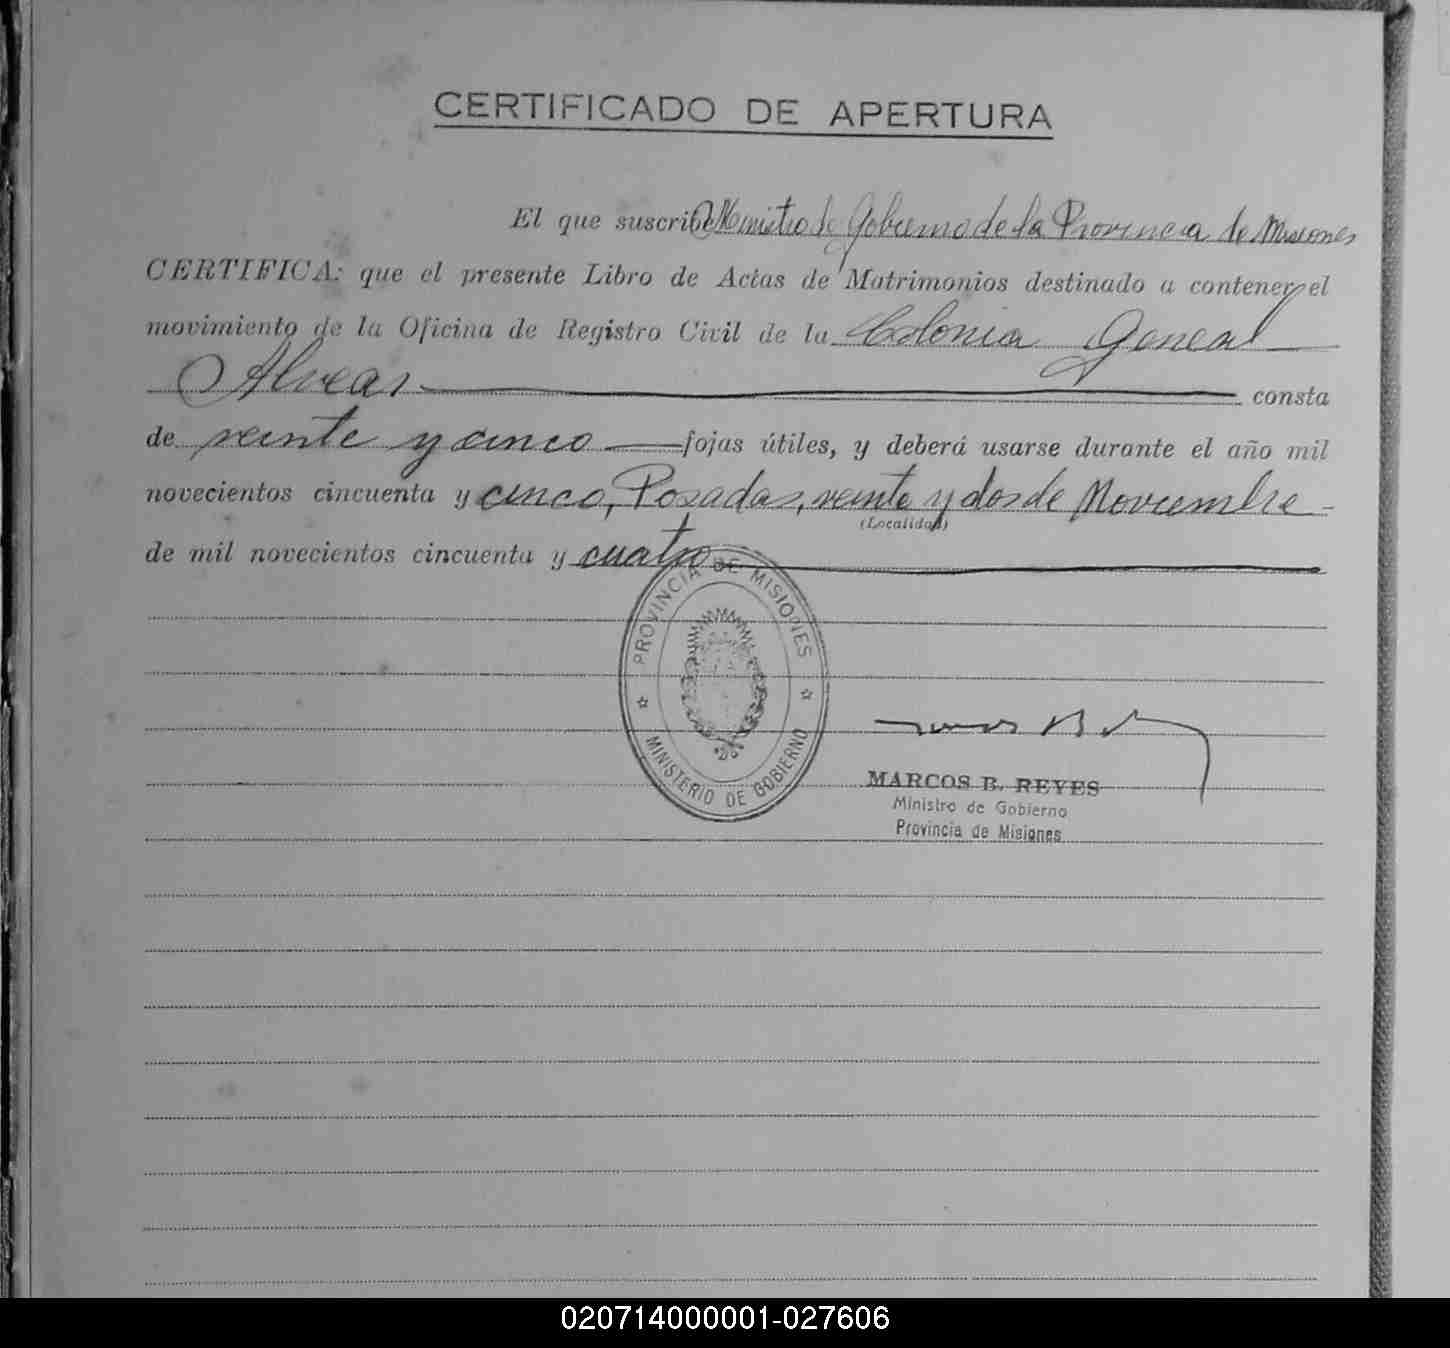 CERTIFICADO DE APERTURA
El que suscribe Ministro de Gobierno de la Provincia de Misiones
CERTIFICA: que el presente Libro de Actas de Matrimonios destinado a contener el
movimiento de la Oficina de Registro Civil de la Colonia General
Alvear consta
de veinte y cinco fojas útiles, y deberá usarse durante el año mil
novecientos cincuenta y cinco, Posadas, veinte y dos de Noviembre
(Localidad)
de mil novecientos cincuenta y cuatro
PROVINCIA DE MISIONES
MINISTERIO DE GOBIERNO
MARCOS B. REYES
Ministro de Gobierno
Provincia de Misiones
020714000001-027606